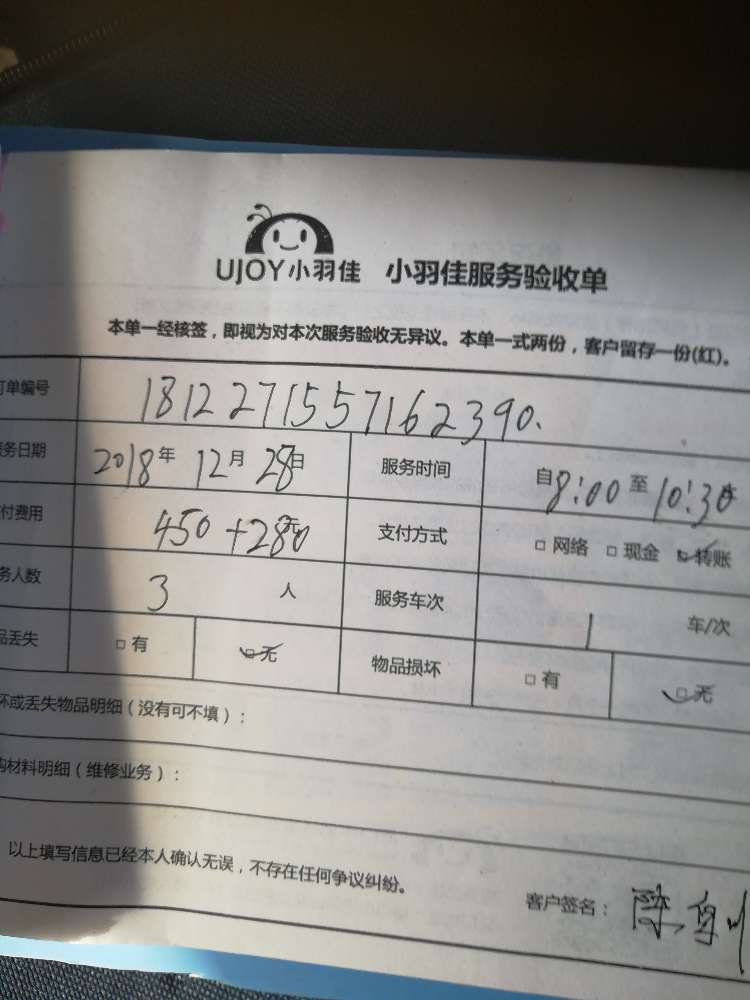 UJOY小羽佳 小羽佳服务验收单
本单一经核签，即视为对本次服务验收无异议。本单一式两份，客户留存一份(红)。
订单编号 1812271557162390.
务日期 2018年 12月 28日 服务时间 自8:00至10:30
付费用 450+280元 支付方式 □网络 □现金 ☑转账
务人数 3 人 服务车次 1 车/次
品丢失 □有 ☑无 物品损坏 □有 ☑无
坏或丢失物品明细（没有可不填）：
购材料明细（维修业务）：
以上填写信息已经本人确认无误，不存在任何争议纠纷。
客户签名：陈